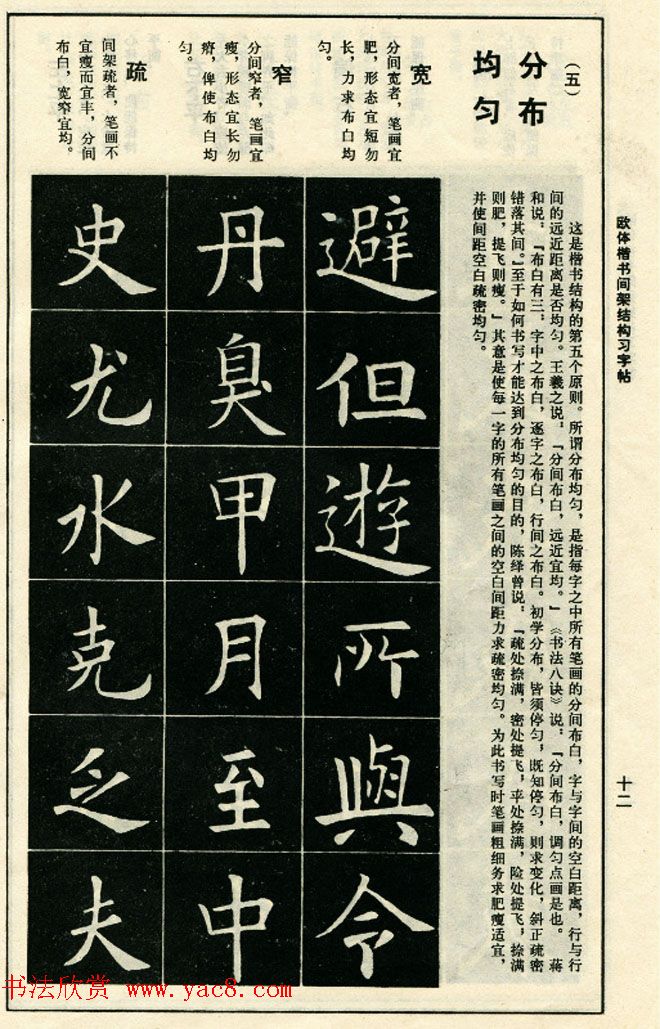 欧体楷书间架结构习字帖
十二
（五）
分布
均匀
这是楷书结构的第五个原则。所谓分布均匀，是指每字之中所有笔画的分间布白，字与字间的空白距离，行与行
间的远近距离是否均匀。王羲之说：『分间布白，远近宜均。』《书法八诀》说：『分间布白，调匀点画是也。』蒋
和说：『布白有三，字中之布白，逐字之布白，行间之布白。初学分布，皆须停匀，既知停匀，则求变化，斜正疏密
错落其间。』至于如何书写才能达到分布均匀的目的，陈绎曾说：『疏处捺满，密处提飞，平处捺满，险处提飞，捺满
则肥，提飞则瘦。』其意是使每一字的所有笔画之间的空白间距力求疏密均匀。为此书写时笔画粗细务求肥瘦适宜，
并使间距空白疏密均匀。
宽
分间宽者，笔画宜
肥，形态宜短勿
长，力求布白均
匀。
避但遊所與令
窄
分间窄者，笔画宜
瘦，形态宜长勿
瘠，俾使布白均
匀。
丹臭甲月至中
疏
间架疏者，笔画不
宜瘦而宜丰，分间
布白，宽窄宜均。
史尤水克乏夫
书法欣赏 www.yac8.com